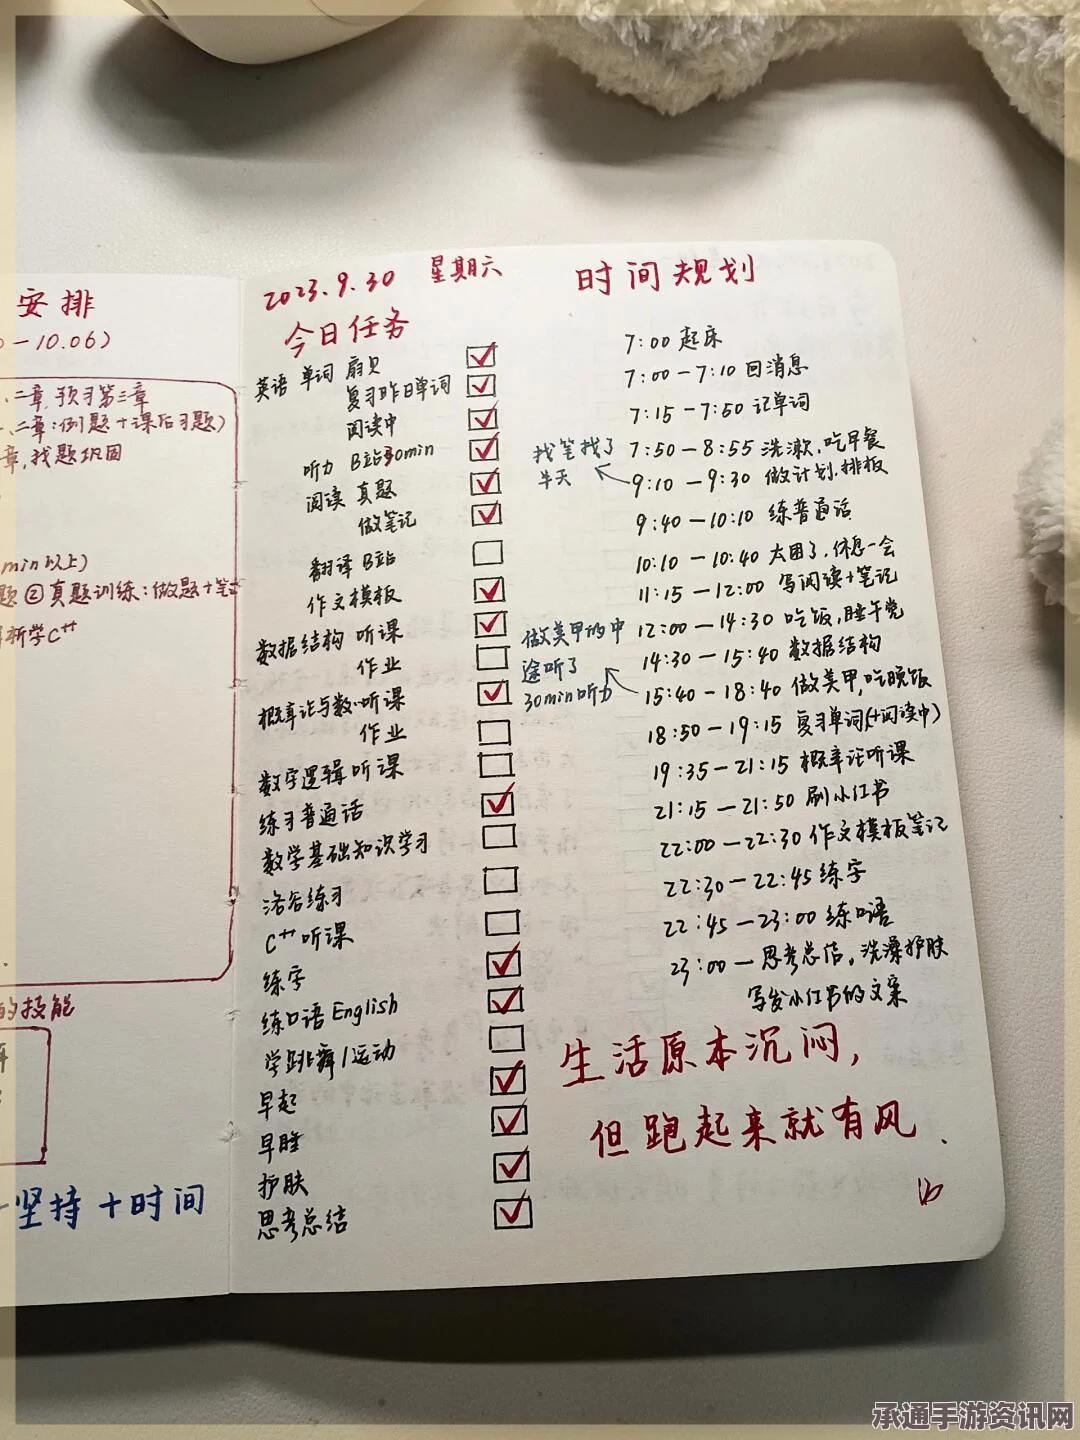 安排
-10.06)
二章,预习第三章
二章:例题+课后习题)
章,找题巩固
min以上)
题②真题训练:做题+笔
新学C++
的技能
坚持+时间
2023.9.30 星期六
今日任务
英语 单词 扇贝
复习昨日单词
阅读中
听力 B站30min
阅读 真题
做笔记
翻译 B站
作文模板
数据结构 听课
作业
概率论与数..听课
作业
数字逻辑听课
练习普通话
数学基础知识学习
洛谷练习
C++听课
练字
练口语English
学跳舞/运动
早起
早睡
护肤
思考总结
时间规划
7:00 起床
7:00-7:10 回消息
7:15-7:50 记单词
7:50-8:55 洗漱,吃早餐
找笔找了
半天
9:10-9:30 做计划.排板
9:40-10:10 练普通话
10:10-10:40 太困了,休息一会
11:15-12:00 写阅读+笔记
12:00-14:30 吃饭,睡午觉
14:30-15:40 数据结构
做美甲的中
途听了
30min听力
15:40-18:40 做美甲,吃晚饭
18:50-19:15 复习单词(+阅读中)
19:35-21:15 概率论听课
21:15-21:50 刷小红书
22:00-22:30 作文模板笔记
22:30-22:45 练字
22:45-23:00 练口语
23:00-思考总结,洗澡护肤
写发小红书的文案
生活原本沉闷,
但跑起来就有风.
承通手游资讯网